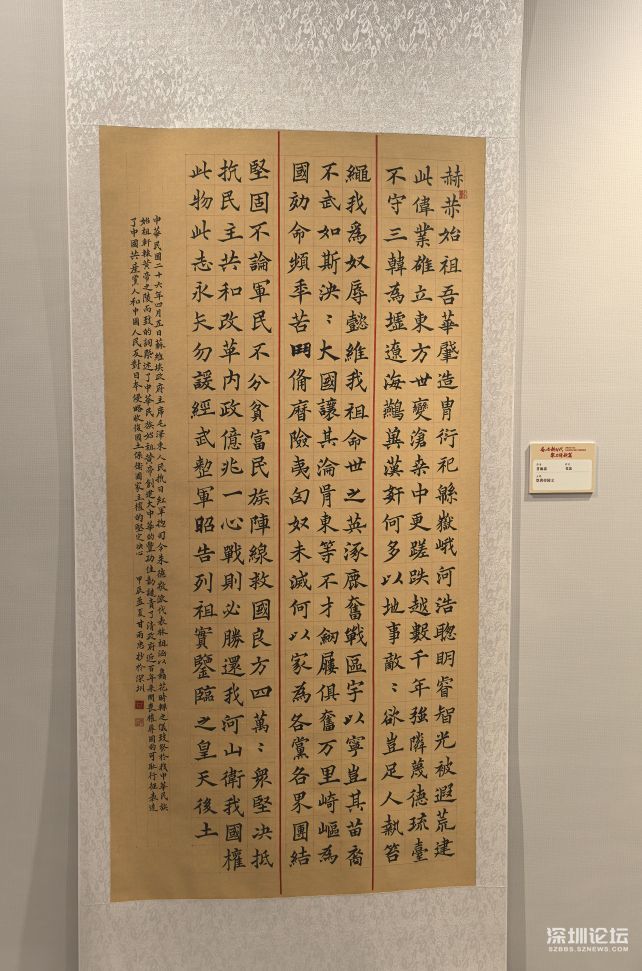 赫恭始祖吾華肇造胄衍祀緜嶽峨河浩聰明睿智光被遐荒建
此偉業雄立東方世變滄桑中更蹉跌越數千年強隣蔑德琉臺
不守三韓為墟遼海鷰冀漢奸何多以地事敵〻欲豈足人執笞
繩我為奴辱懿維我祖命世之英涿鹿奮戰區宇以寧豈其苗裔
不武如斯泱〻大國讓其淪胥東等不才劒屨俱奮万里崎嶇為
國効命頻年苦鬥備歷險夷匈奴未滅何以家為各黨各界團結
堅固不論軍民不分貧富民族陣線救國良方四萬〻衆堅决抵
抗民主共和改革内政億兆一心戰則必勝還我河山衛我國權
此物此志永矢勿諼經武整軍昭告列祖實鑒臨之皇天後土
中華民國二十六年四月五日蘇維埃政府主席毛澤東人民抗日紅軍總司令朱德敬派代表林祖涵以鮮花時輝之儀致祭於我中華民族
始祖軒轅黃帝之陵而致的詞祭述了中華民族始祖贊帝創建大中華的豐功佳勣譴責了清政府近百年來開喪權辱國的可恥行徑表達
了中國共產黨人和中國人民反對日本侵略收復國土保衛國家主權的堅定決心 甲辰孟夏甘雨忠抄於深圳
深圳论坛
SZBBS.SZNEWS.COM